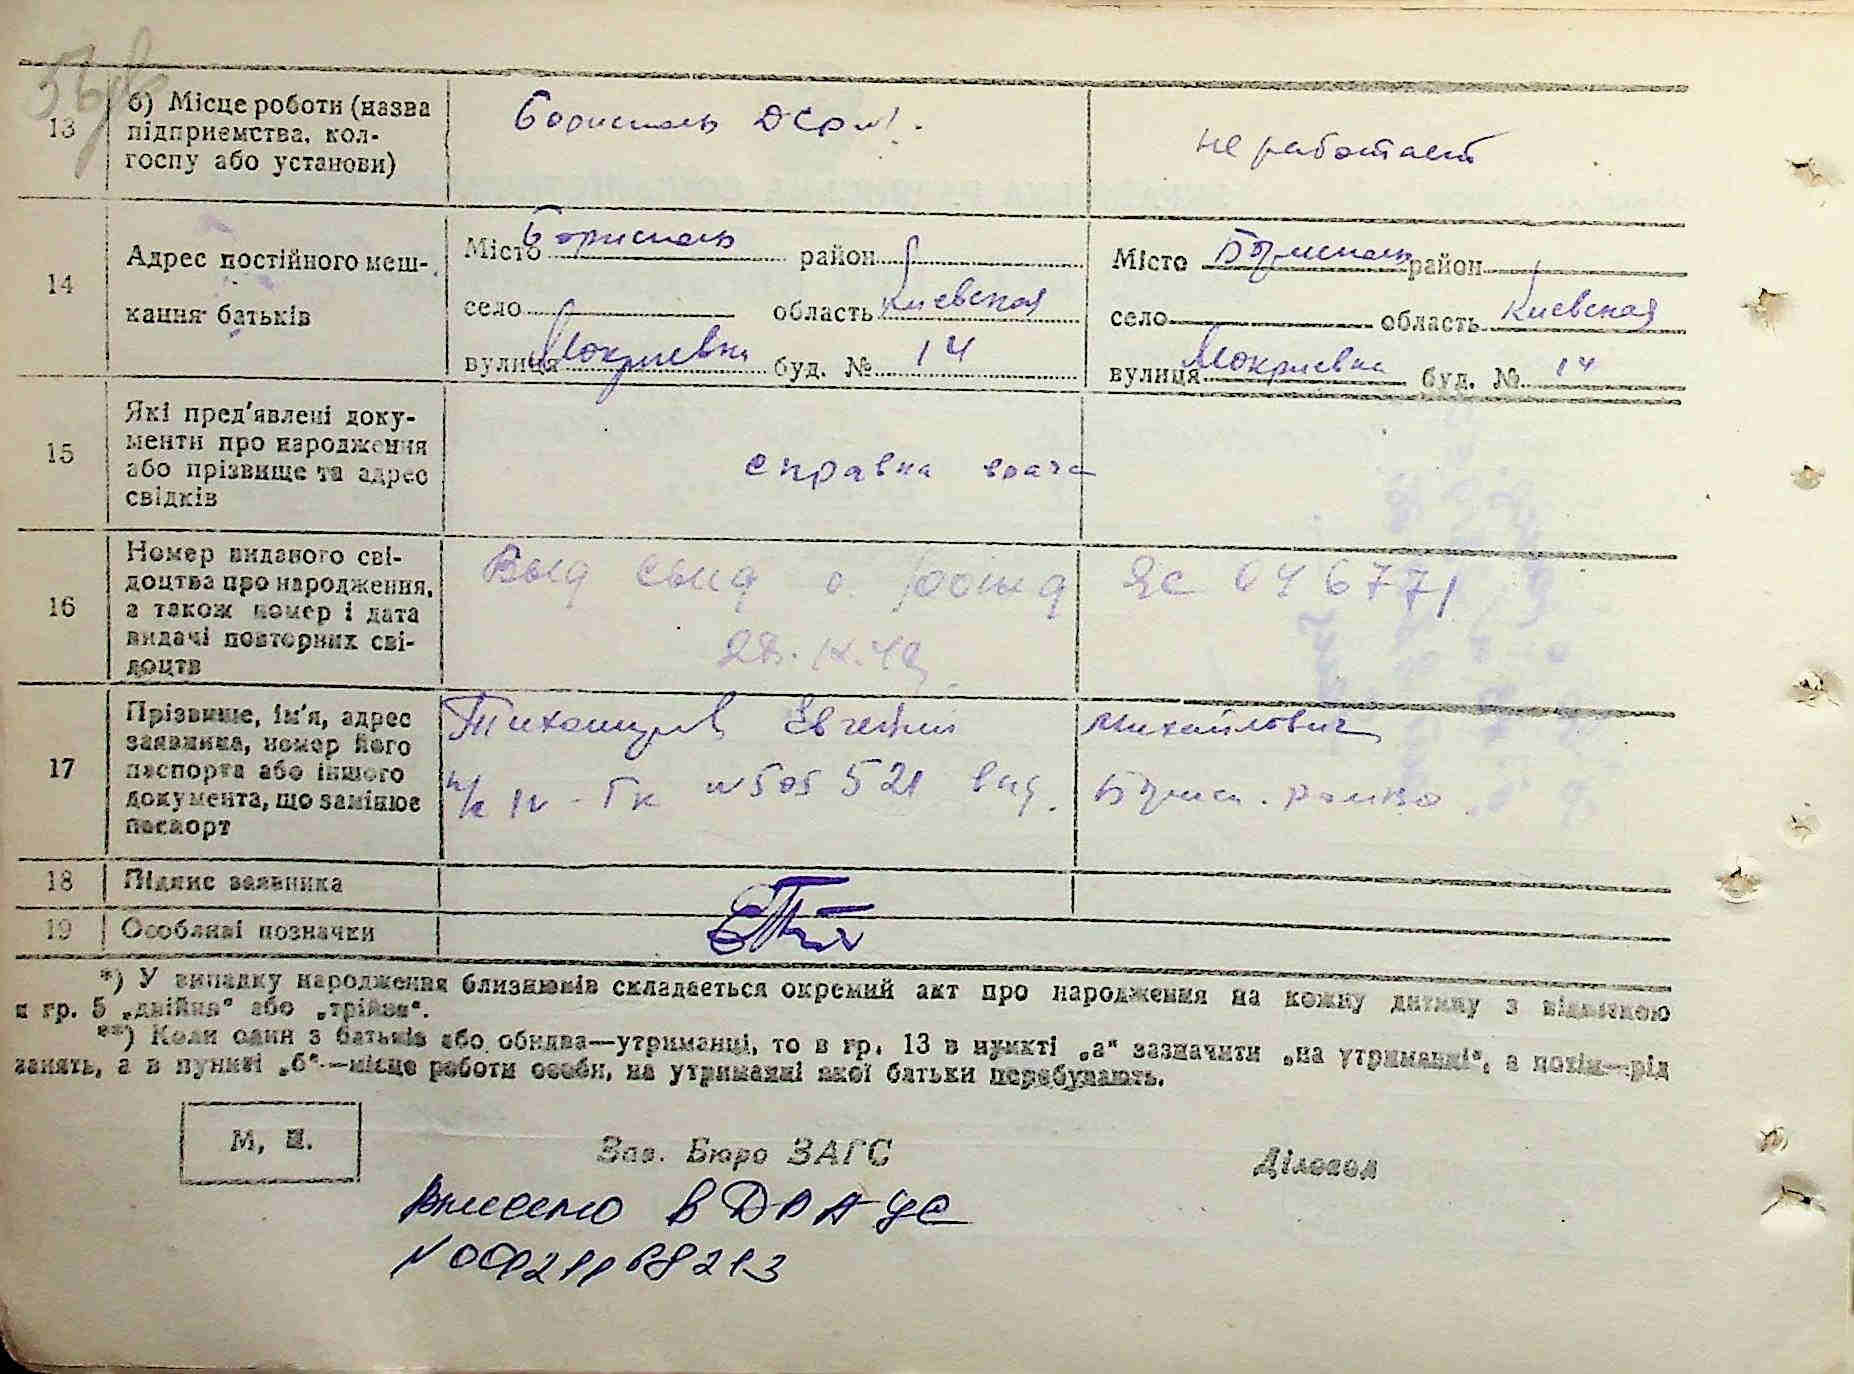 13
б) Місце роботи (назва
підприємства, кол-
госпу або установи)
Борисполь
не работает
14
Адрес постійного меш-
кання батьків
Місто Борисполь район
село область Киевская
вулиця буд. № 14
Місто Борисполь район
село область Киевская
вулиця буд. № 14
15
Які пред'явлені доку-
менти про народження
або прізвище та адрес
свідків
справка врача
16
Номер виданого сві-
доцтва про народження,
а також номер і дата
видачі повторних сві-
доцтв
о 046771
17
Прізвище, ім'я, адрес
заявника, номер його
паспорта або іншого
документа, що замінює
паспорт
Тихомиров Евгений Михайлович
п/с IV-ГК № 505521
18
Підпис заявника
19
Особливі позначки
*) У випадку народження близнюків складається окремий акт про народження на кожну дитину з відміткою
в гр. 5 „двійня“ або „трійня“.
**) Коли один з батьків або обидва—утриманці, то в гр. 13 в пункті „а“ зазначити „на утриманні“, а потім—рід
занять, а в пункті „б“—місце роботи особи, на утриманні якої батьки перебувають.
М. П.
Зав. Бюро ЗАГС
Діловод
Внесено в ДРАЦС